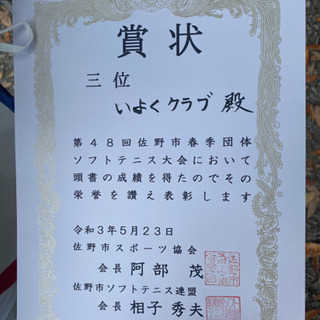 賞状
三位
いよくクラブ 殿
第48回佐野市春季団体
ソフトテニス大会において
頭書の成績を得たのでその
栄誉を讃え表彰します
令和3年5月23日
佐野市スポーツ協会
会長 阿部 茂
佐野市ソフトテニス連盟
会長 相子秀夫